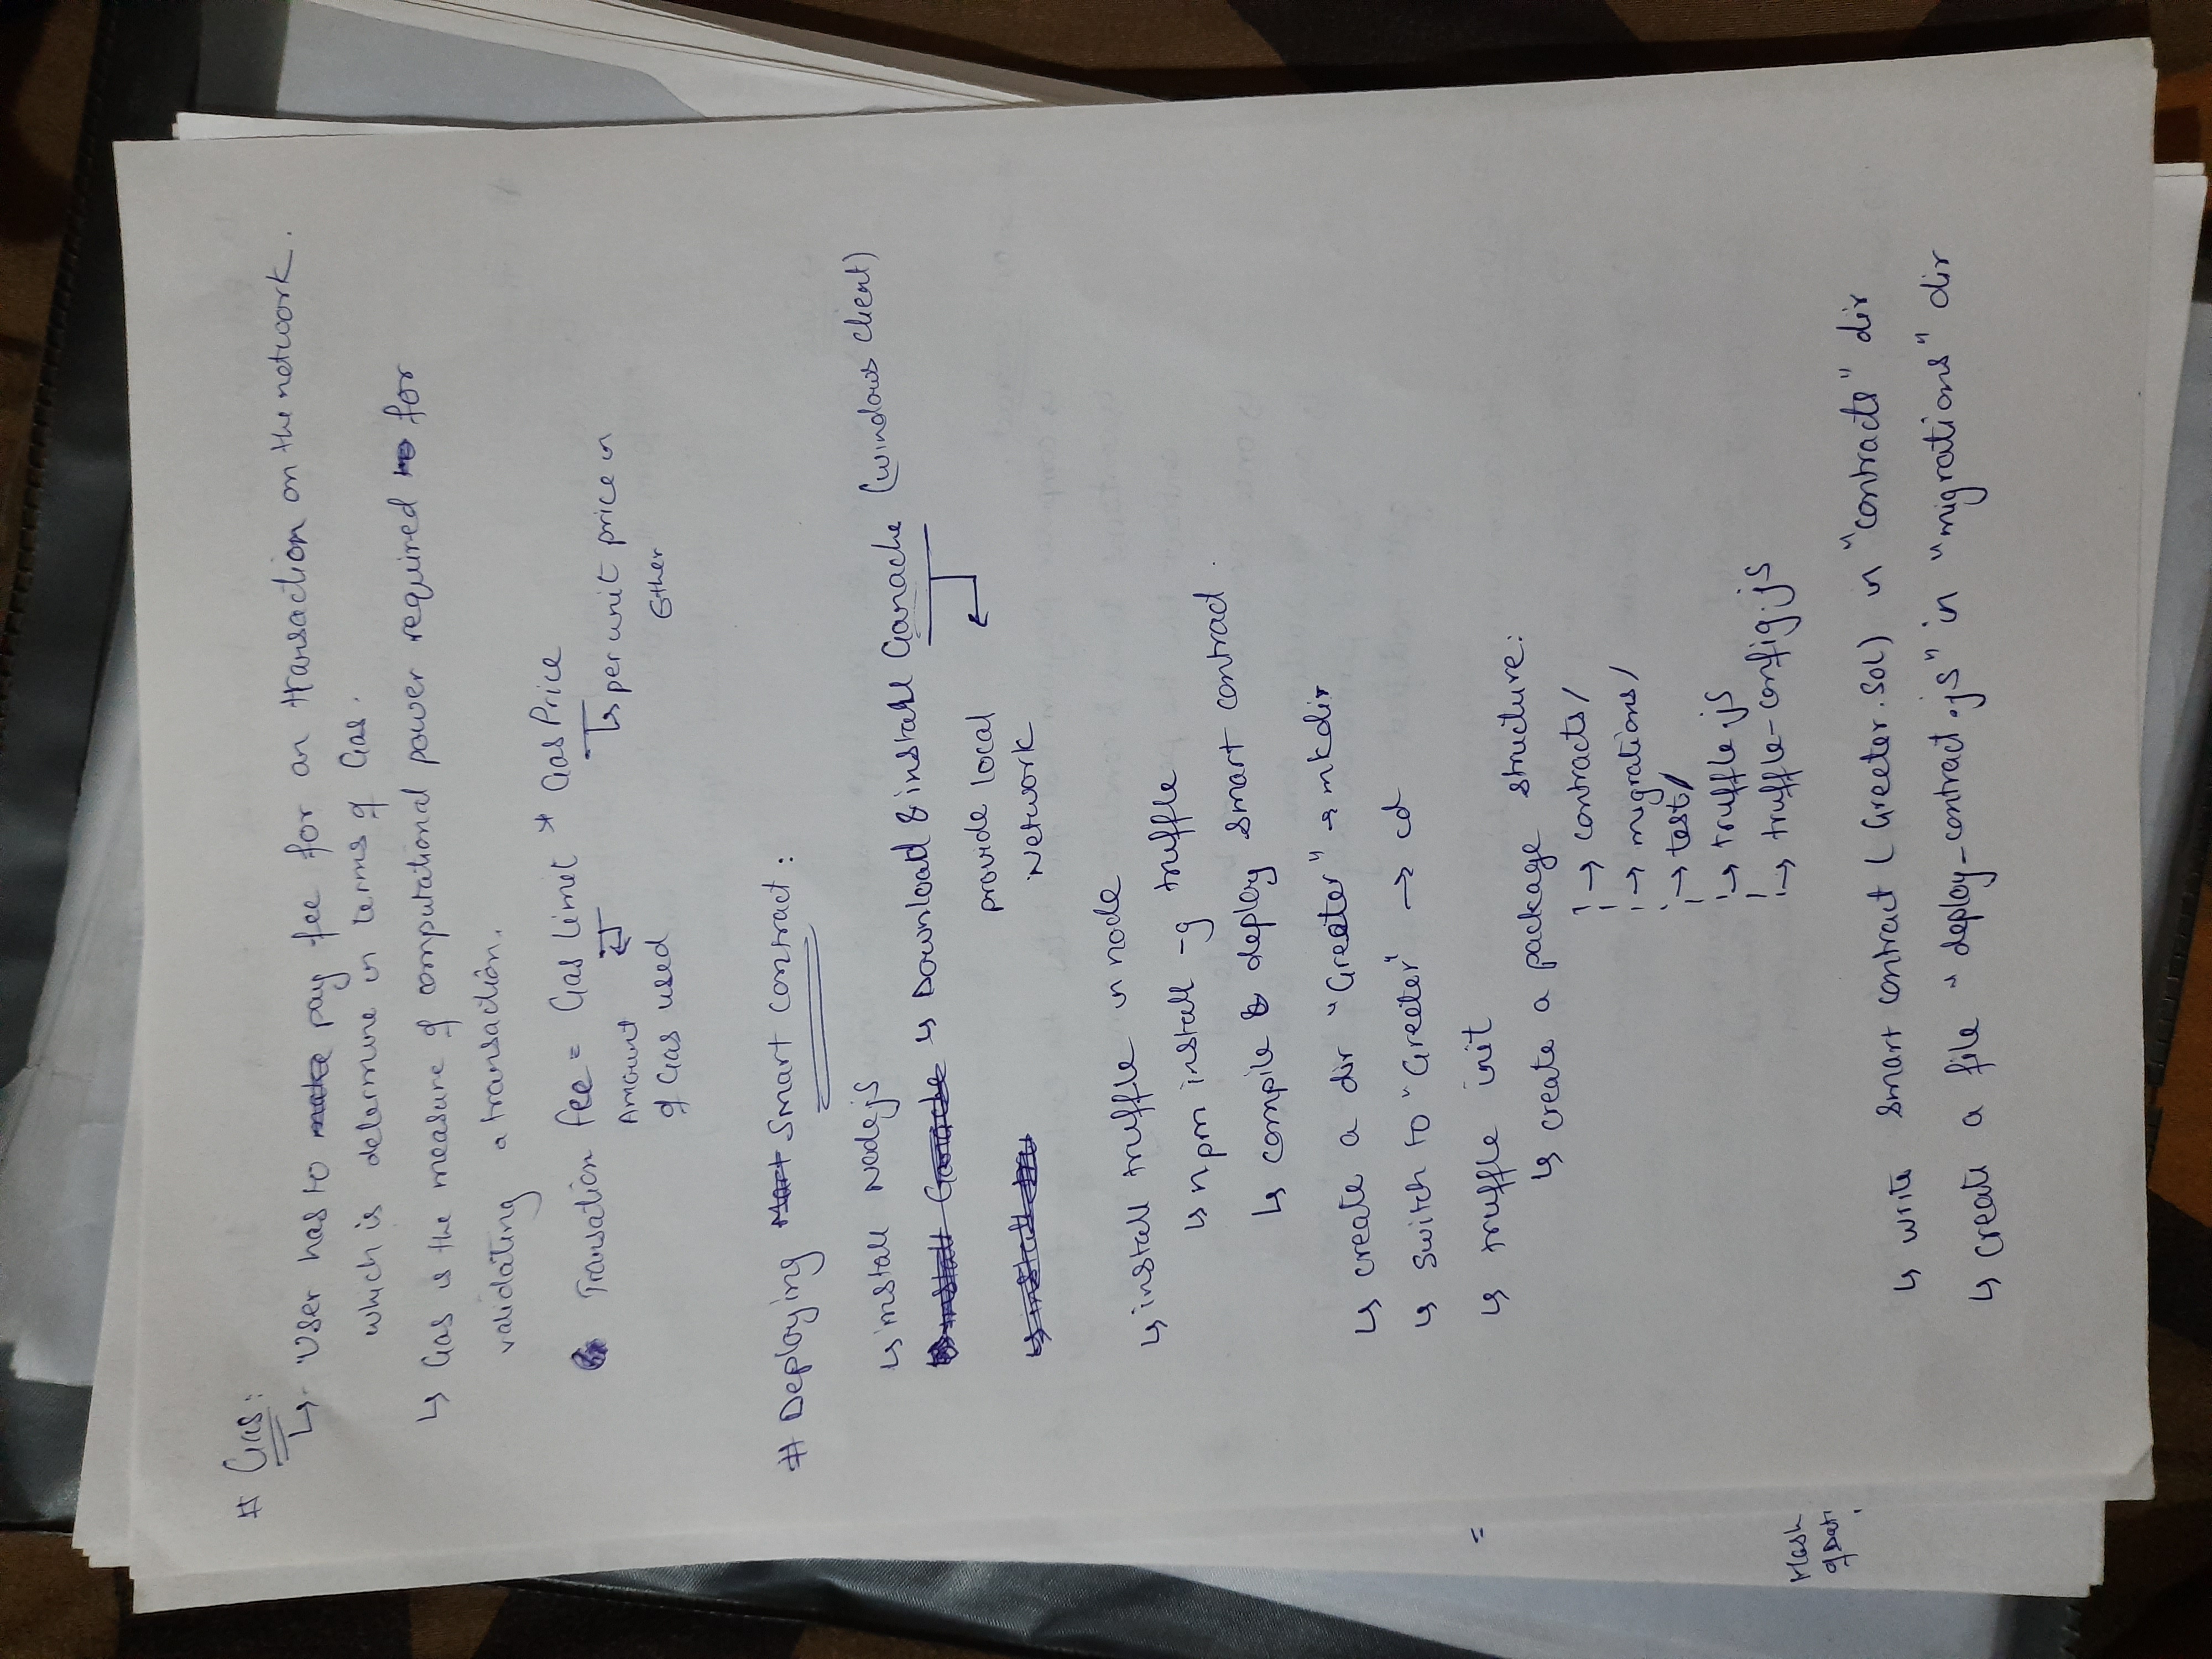 # Gas:
↳ User has to make pay fee for an transaction on the network.
which is determine in terms of Gas.
↳ Gas is the measure of computational power required to for
validating a transaction.
Transation fee = Gas Limit * Gas Price
Amount
of Gas used
↳ per unit price in
Ether
# Deploying Mart Smart contract:
↳ install Nodejs
install Ganache ↳ Download & install Ganache (windows client)
provide local
Network
↳ install tru
↳ install truffle in node
↳ npm install -g truffle
↳ compile & deploy smart contract.
↳ create a dir "Greeter" → mkdir
↳ switch to "Greeter" → cd
=
↳ truffle init
↳ create a package structure:
→ contracts/
→ migrations/
→ test/
→ truffle.js
→ truffle-config.js
Hash
of Dat
↳ write smart contract (Greeter.sol) in "contracts" dir
↳ create a file "deploy_contract.js" in "migrations" dir